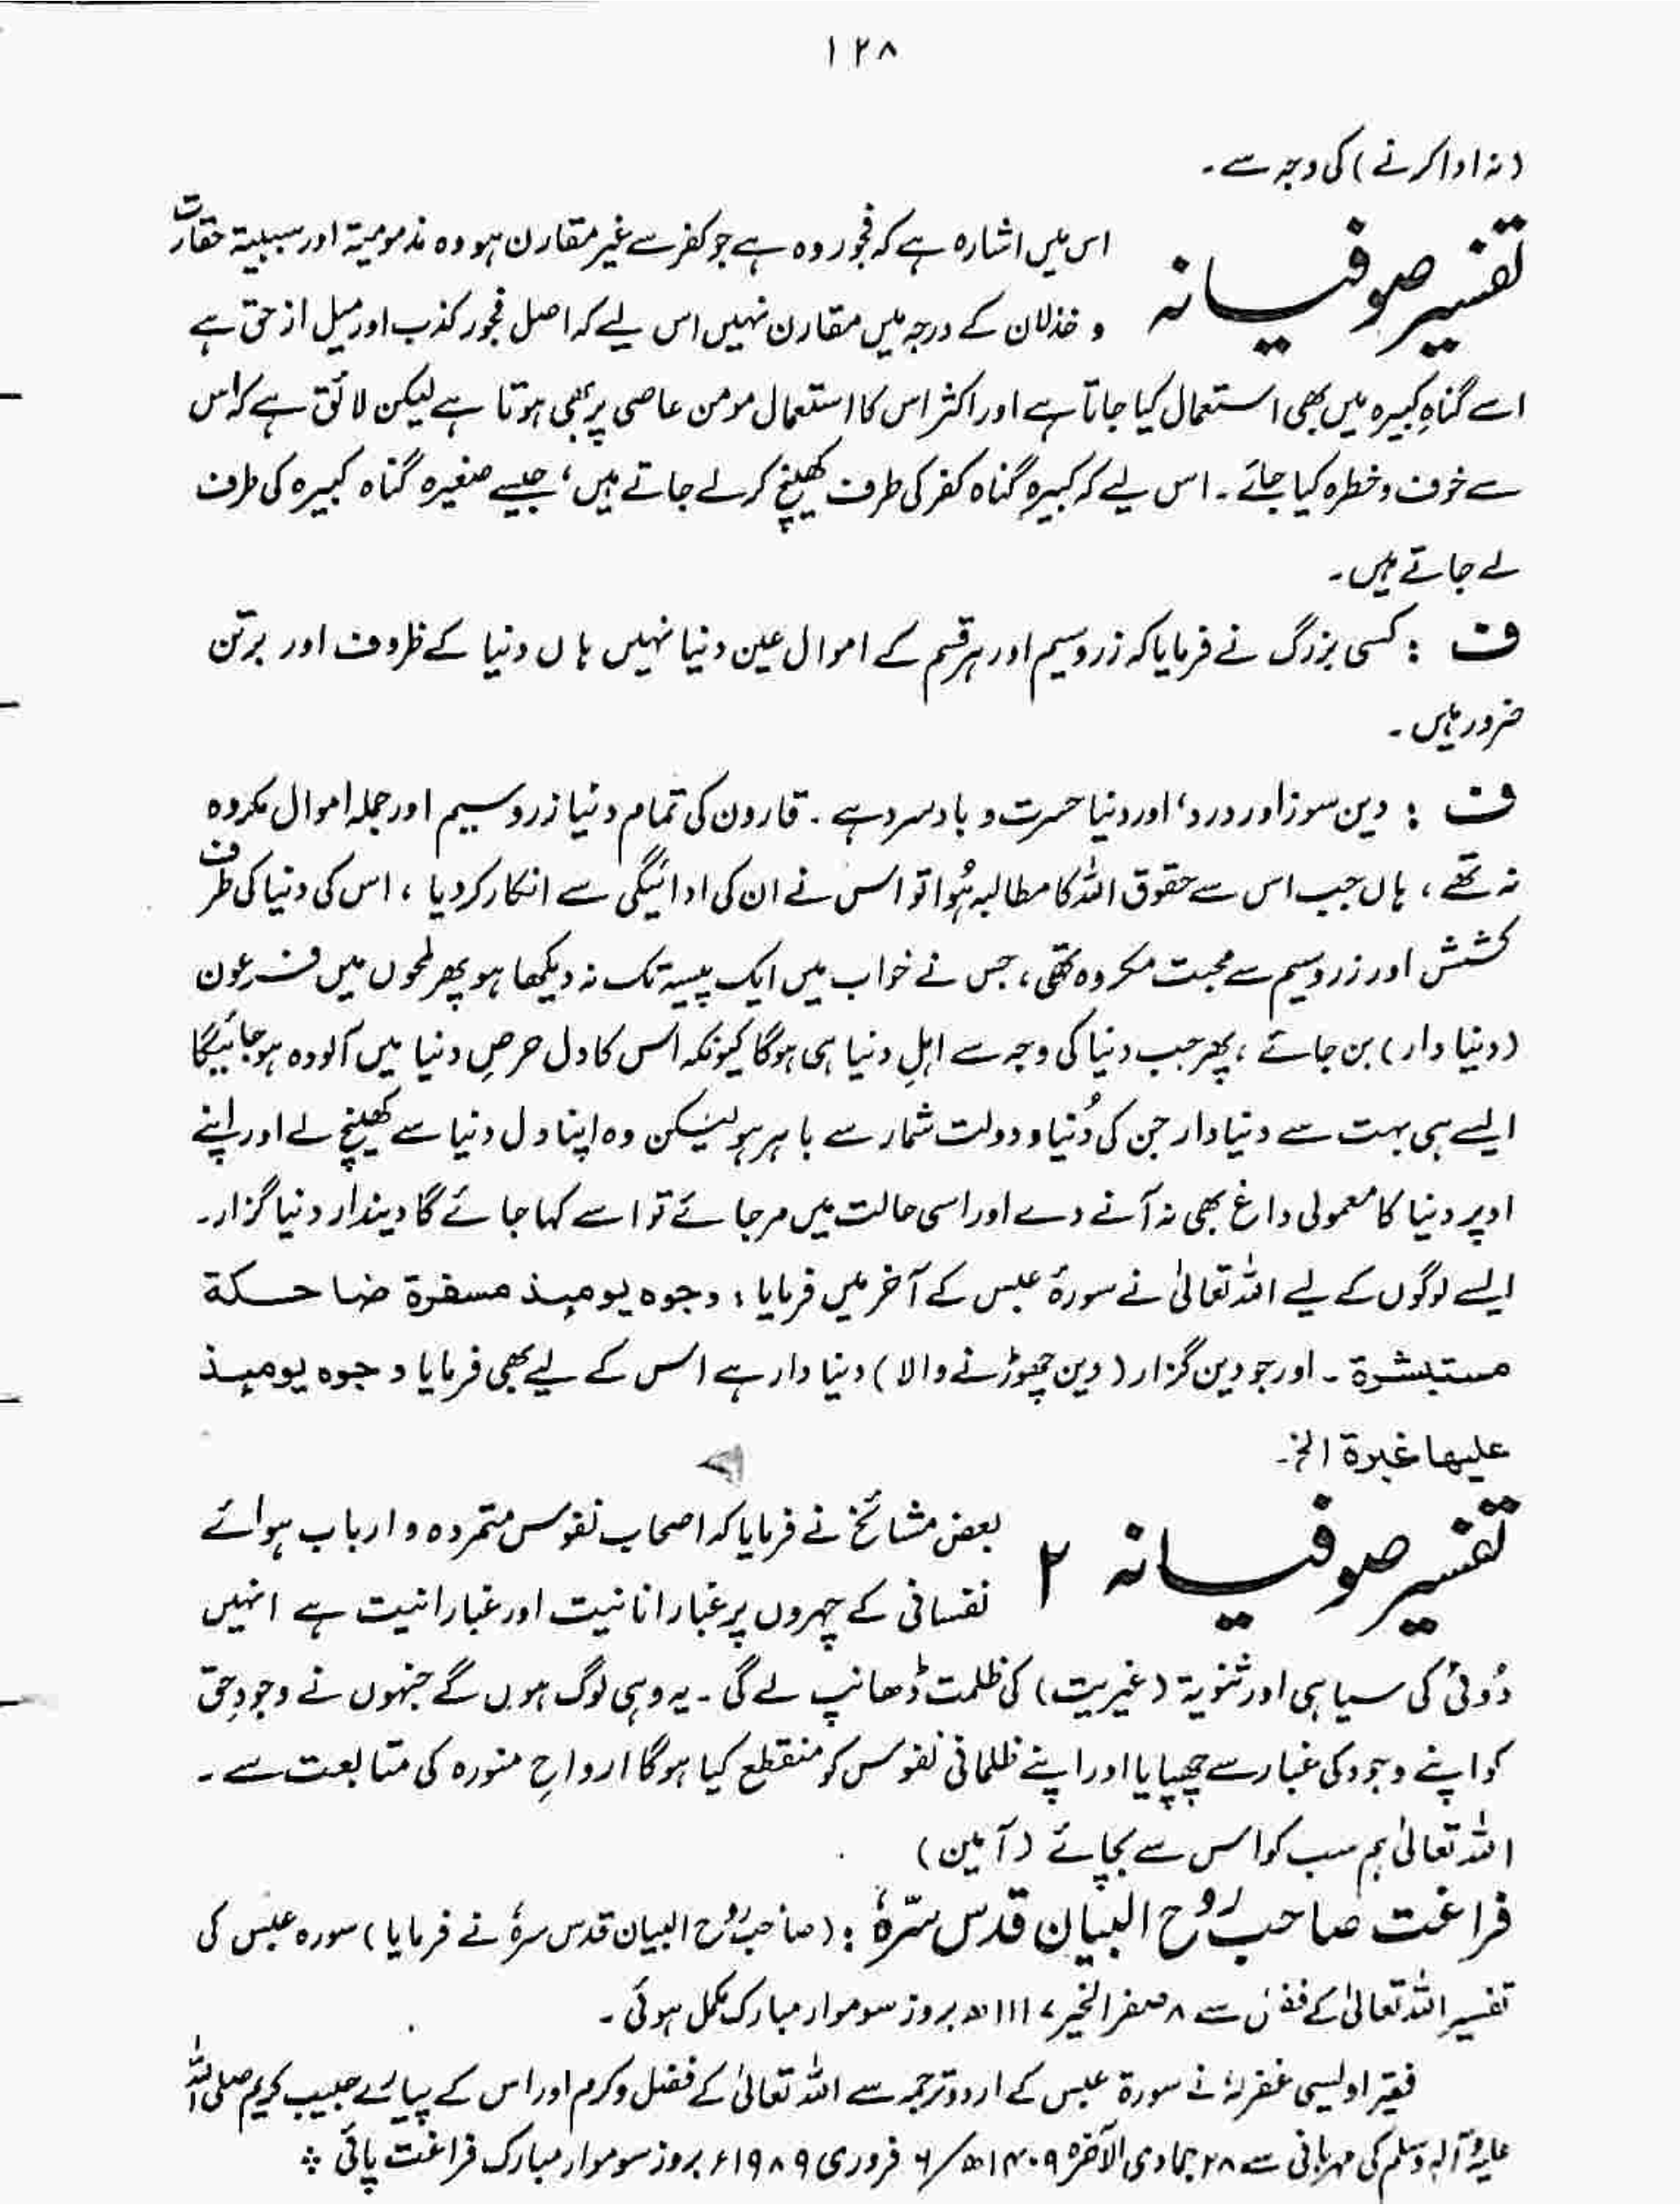 ۱۲۸
(نہ ادا کرنے) کی وجہ سے۔
تفسیر صوفیانہ
اس میں اشارہ ہے کہ فجور وہ ہے جو کفر سے غیر مقارن ہو وہ مذمومیۃ اور سببیۃ حقارت
و خذلان کے درجہ میں مقارن نہیں اس لیے کہ اصل فجور کذب اور میل از حق ہے
اسے گناہِ کبیرہ میں بھی استعمال کیا جاتا ہے اور اکثر اس کا استعمال مومن عاصی پر بھی ہوتا ہے لیکن لائق ہے کہ اس
سے خوف و خطرہ کیا جائے۔ اس لیے کہ کبیرہ گناہ کفر کی طرف کھینچ کر لے جاتے ہیں، جیسے صغیرہ گناہ کبیرہ کی طرف
لے جاتے ہیں۔
ف : کسی بزرگ نے فرمایا کہ زر و سیم اور ہر قسم کے اموال عین دنیا نہیں ہاں دنیا کے ظروف اور برتن
ضرور ہیں۔
ف : دین سوز اور درد، اور دنیا حسرت و بادِ سرد ہے۔ قارون کی تمام دنیا زر و سیم اور جملہ اموال مکروہ
نہ تھے، ہاں جب اس سے حقوق اللہ کا مطالبہ ہُوا تو اس نے ان کی ادائیگی سے انکار کر دیا، اس کی دنیا کی طرف
کشش اور زر و سیم سے محبت مکروہ تھی، جس نے خواب میں ایک پیسہ تک نہ دیکھا ہو پھر لمحوں میں فرعون
(دنیا دار) بن جائے، پھر جب دنیا کی وجہ سے اہلِ دنیا ہی ہوگا کیونکہ اس کا دل حرصِ دنیا میں آلودہ ہو جائیگا
ایسے ہی بہت سے دنیا دار جن کی دُنیا و دولت شمار سے باہر ہو لیکن وہ اپنا دل دنیا سے کھینچ لے اور اپنے
اوپر دنیا کا معمولی داغ بھی نہ آنے دے اور اسی حالت میں مر جائے تو اسے کہا جائے گا دیندار دنیا گزار۔
ایسے لوگوں کے لیے اللہ تعالیٰ نے سورۂ عبس کے آخر میں فرمایا : وجوہ یومئذ مسفرۃ ضاحکۃ
مستبشرۃ۔ اور جو دین گزار (دین چھوڑنے والا) دنیا دار ہے اس کے لیے بھی فرمایا وجوہ یومئذ
علیھا غبرۃ الخ۔
تفسیر صوفیانہ ۲
بعض مشائخ نے فرمایا کہ اصحاب نفوس متمردہ و ارباب ہوائے
نفسانی کے چہروں پر غبار انانیت اور غبار انیت ہے انہیں
دُوئی کی سیاہی اور ثنویۃ (غیریت) کی ظلمت ڈھانپ لے گی۔ یہ وہی لوگ ہوں گے جنہوں نے وجودِ حق
کو اپنے وجود کی غبار سے چھپایا اور اپنے ظلمانی نفوس کو منقطع کیا ہوگا ارواحِ منورہ کی متابعت سے۔
اللہ تعالیٰ ہم سب کو اس سے بچائے (آمین)
فراغت صاحب رُوح البیان قدس سرّہٗ : (صاحب رُوح البیان قدس سرہٗ نے فرمایا) سورہ عبس کی
تفسیر اللہ تعالیٰ کے فضل سے ۸ صفر الخیر ۱۱۱۷ھ بروز سوموار مبارک مکمل ہوئی۔
فقیر اویسی غفرلہٗ نے سورۃ عبس کے اردو ترجمہ سے اللہ تعالیٰ کے فضل و کرم اور اس کے پیارے حبیب کریم صلی اللہ
علیہ وآلہ وسلم کی مہربانی سے ۲۸ جمادی الآخرہ ۱۴۰۹ھ / ۶ فروری ۱۹۸۹ء بروز سوموار مبارک فراغت پائی ؞